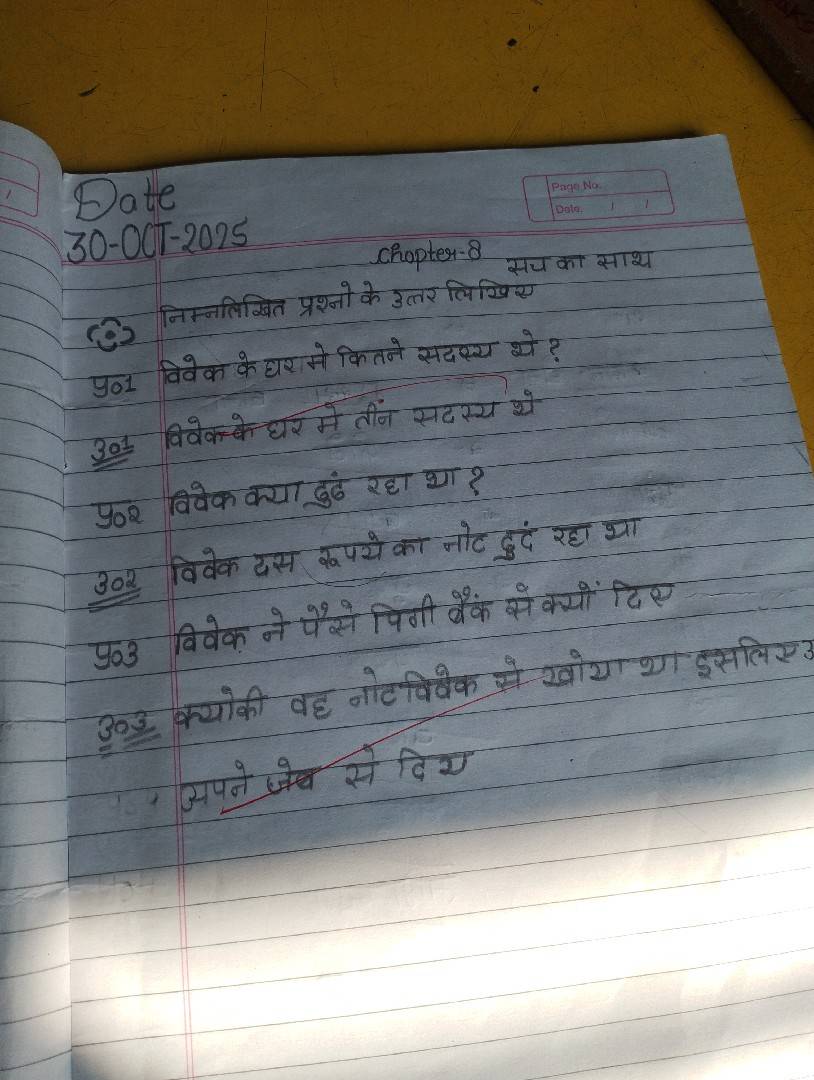 Page No.
Date. / /
Date
30-OCT-2025
Chapter-8 सच का साथ
निम्नलिखित प्रश्नो के उत्तर लिखिए
प्र०1 विवेक के घर मे कितने सदस्य थे ?
उ०1 विवेक के घर मे तीन सदस्य थे
प्र०2 विवेक क्या ढुढं रहा था ?
उ०2 विवेक दस रूपये का नोट ढुढं रहा था
प्र०3 विवेक ने पैसे पिगी बैंक से क्यों दिए
उ०3 क्योकी वह नोट विवेक से खोया था इसलिए उ
अपने जेब से दिए